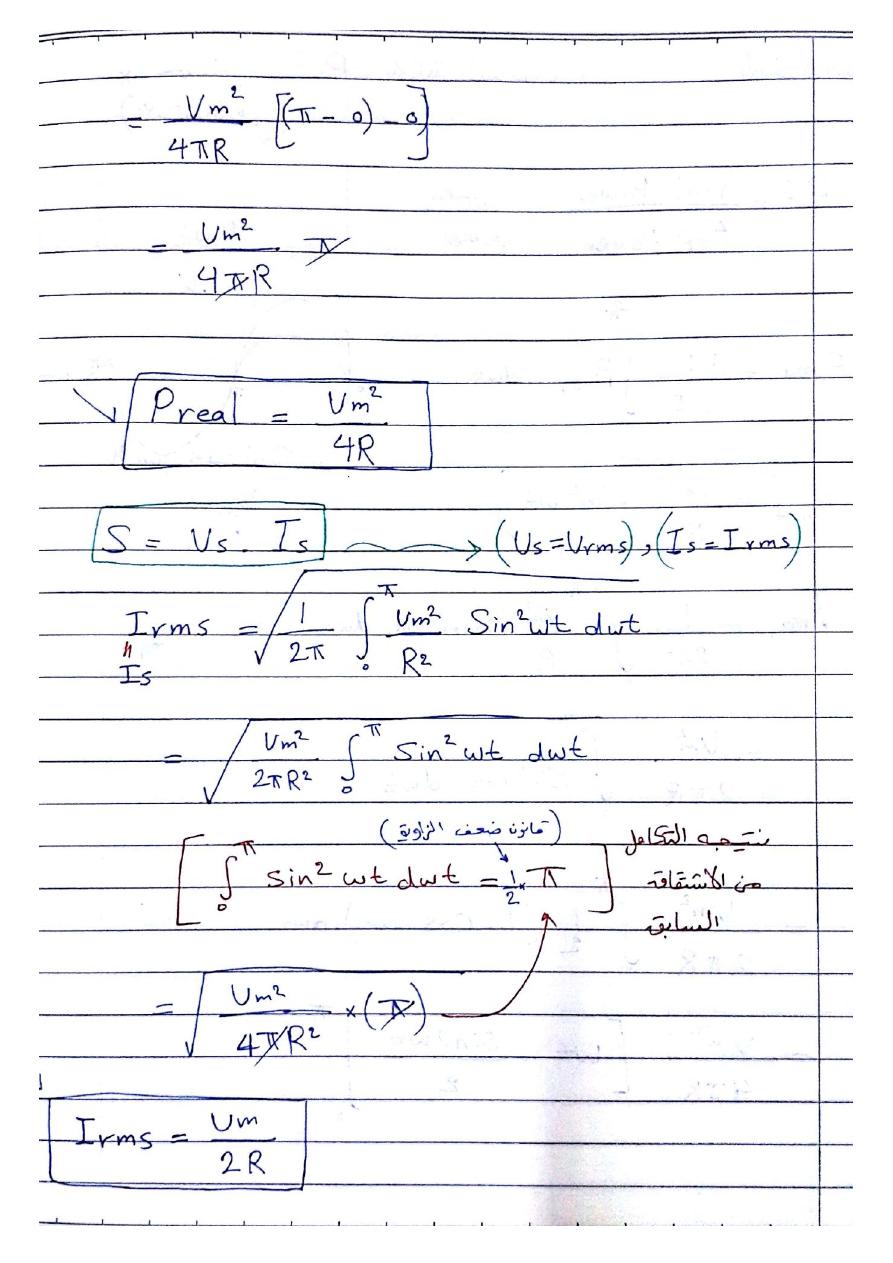 = Vm² / 4πR [(π - 0) - 0]
= Vm² / 4πR π
Preal = Vm² / 4R
S = Vs . Is → (Vs = Vrms), (Is = Irms)
Irms = √ 1 / 2π ∫₀^π Vm² / R² Sin² wt dwt
"
Is
= √ Vm² / 2πR² ∫₀^π Sin² wt dwt
(قانون ضعف الزاوية)
[ ∫₀^π sin² wt dwt = 1/2 × π ] نتيجه التكامل
من الاشتقاقة
السابق
= √ Vm² / 4πR² × (π)
Irms = Vm / 2R